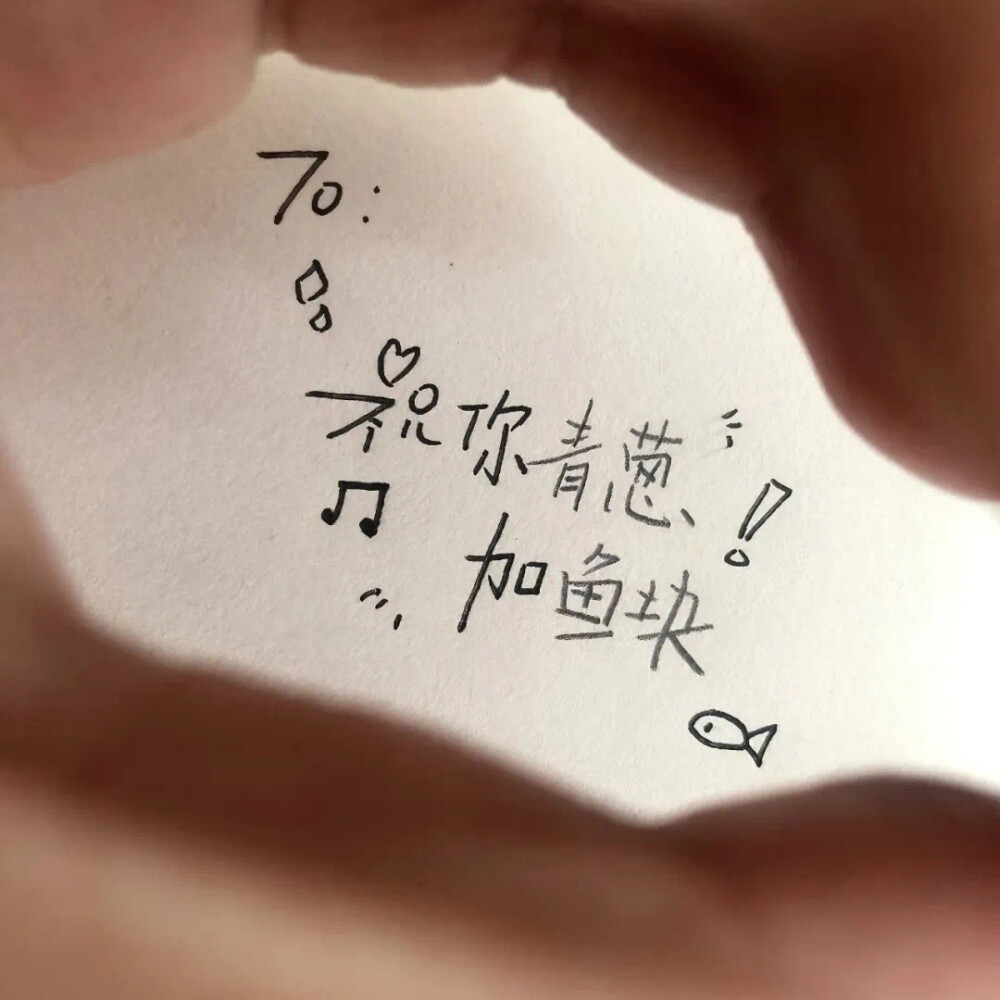 To:
祝你青葱
加鱼块!